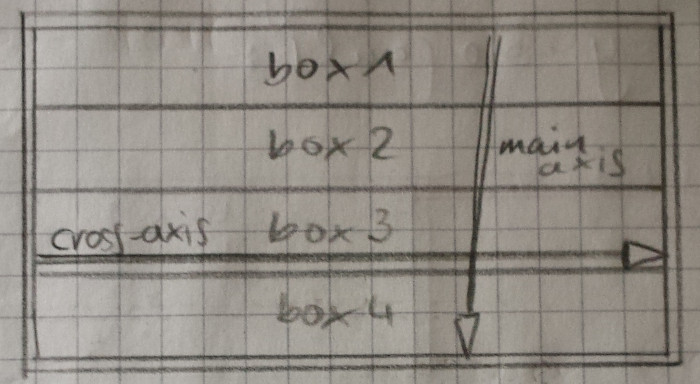 box 1
box 2
main
axis
cross-axis
box 3
box 4